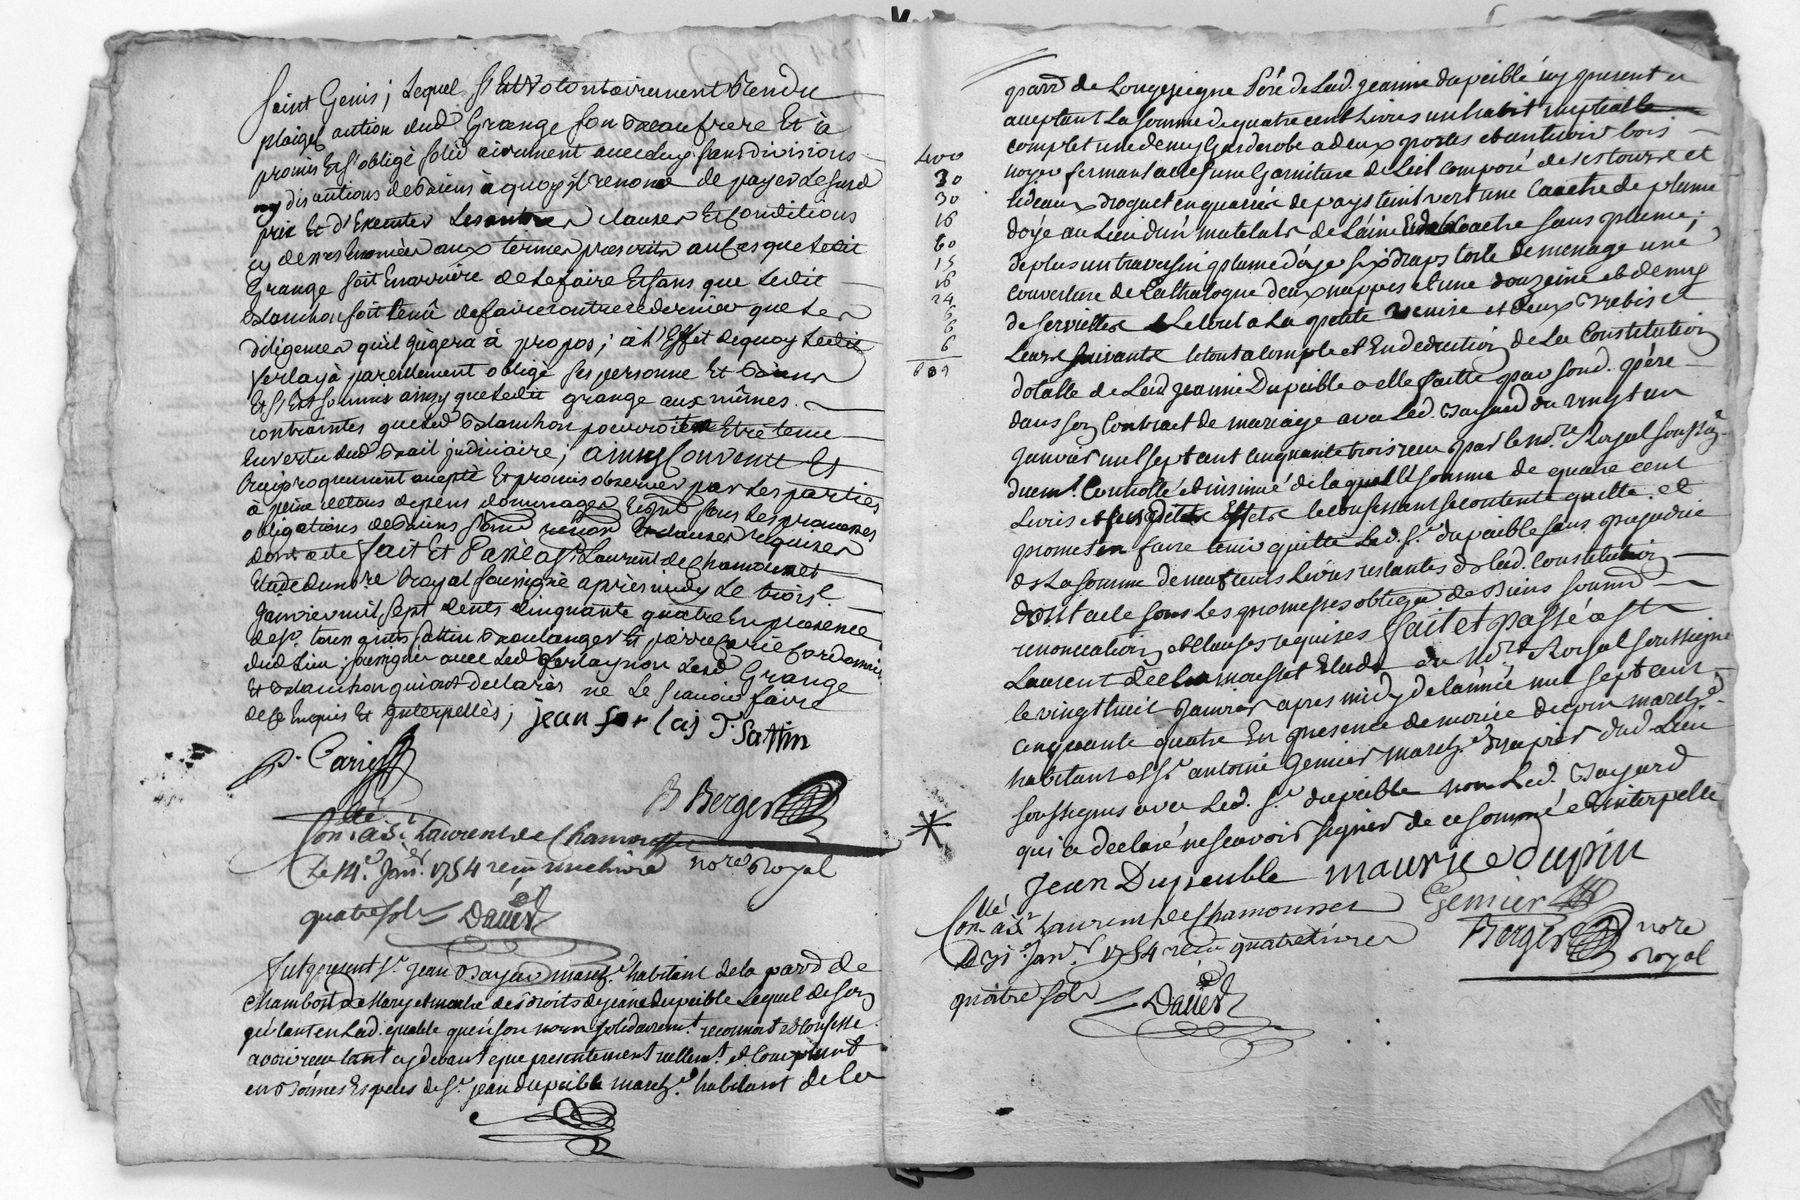 Saint Genis ; Lequel s'Est Volontairement Rendu
plaige aution dud Grange son Beaufrere Et à
promis Et s'obligé solid airement avec Luy sans divisions
ny dis autions de Baiens à quoy il renonce de payer Le susd
prix Et d'Executer Les autres clauses Et Conditions
cy devres Enoncées aux termes prescrits au Cas que Ledit
Grange soit En arrière de Le faire Et sans que Ledit
Blanchon soit tenû de faire contre ce dernier que Les
diligences qu'il jugera à propos ; à l'Effet de quoy Ledit
Verlay à pareillement obligé ses personne Et Biens
Et s'Est soumis ainsy que Ledit grange aux mêmes
contraintes que Led Blanchon pourroit Etre tenu
En vertu dud Bail judiciaire ; ainsy Convenu Et
Reciproquement accepté Et promis observer par Les parties
à peine de tous depens dommages sous Les promesses
obligations de Baiens soumd renond Et clauses requises
dont acte fait Et Passé à St Laurent de Chamousset
Etude du nore Royal soussigné après midy Le trois
Janvier mil sept cents cinquante quatre En presence
de Sr. Sattin Boulanger Et pierre Carie Cordonnier
dud Lieu ; soussignés avec Led ferlay non Lesd Grange
Et Blanchon qui ont declarés ne Le scavoir faire
de ce Enquis Et Interpellés ; jean ferlaj J. Sattin
P. Carie
B Berger
nore Royal
Con.llé à St Laurent de Chamousset
Le 14e Janr. 1754 reçu une livre
quatre sols Dauest
fut present Sr. jean Bayard march.d habitant de la parr de
Chambost Mary et maitre des droits de jeanne dupeible Lequel de son
gré tant en Lad. qualité qu'en son nom solidairemt. reconnoit et confesse
avoir reçu tant cy devant que presentement réellemt. et Comptant
en Bonnes Especes de Sr. jean dupeible march.d habitant de la
parr de Longessaigne Père de Lad. jeanne dupeible icy present et
aceptant La somme de quatre cent Livres un habit nuptial
complet une demy Garderobe a deux portes et un tiroir bois
noyer fermant a clef une Garniture de Lict Composé de ses tours et
rideaux droguet en quarrés de pays teint vert une Coaitre de plume
d'oye au Lieu d'un matelats de Laine Coaitre sans plume
de plus un traversin plume d'oye six draps toile de menage une
Couverture de Cathalogne deux nappes et une douzeine et demy
de serviettes Le tout a La petite Venise et deux Brebis et
Leurs suivants le tout a compte et En deduction de La Constitution
dotalle de Lad jeanne Dupeible a elle faitte par sond. père
dans son Contract de mariage avec Led. Bayard du vingt un
janvier mil sept cent cinquante trois reçu par le nore. Royal soussig.
duemt. Controllé et insinué de laquelle somme de quatre cent
Livres et susdits Effets le confessant se contente quitte et
promet en faire tenir quitte Led. Sr. dupeible sans prejudice
de La somme de neuf cents Livres restantes de lad. Constitution
Dont acte sous Les promesses obligaõn de Biens soumd
renonciation et Clauses requises fait et passé a St
Laurent de Chamousset Etude du Nore Royal soussigné
le vingt huit Janvier apres midy de l'année mil sept cent
cinquante quatre En presence de Morice dupin march.d
habitant et Sr. antoine Gemier march.d Drapier dud Lieu
soussignés avec Led. Sr. dupeible non Led. Bayard
qui a declaré ne scavoir signer de ce sommé et interpellé
400
30
30
16
60
15
16
24
6
6
6
609
Jean Dupeuble maurice dupin
Gemier
Berger nore
Royal
Con.llé à St Laurent de Chamousset
Le 31e Janr. 1754 reçu quatre livres
quatre sols Dauest